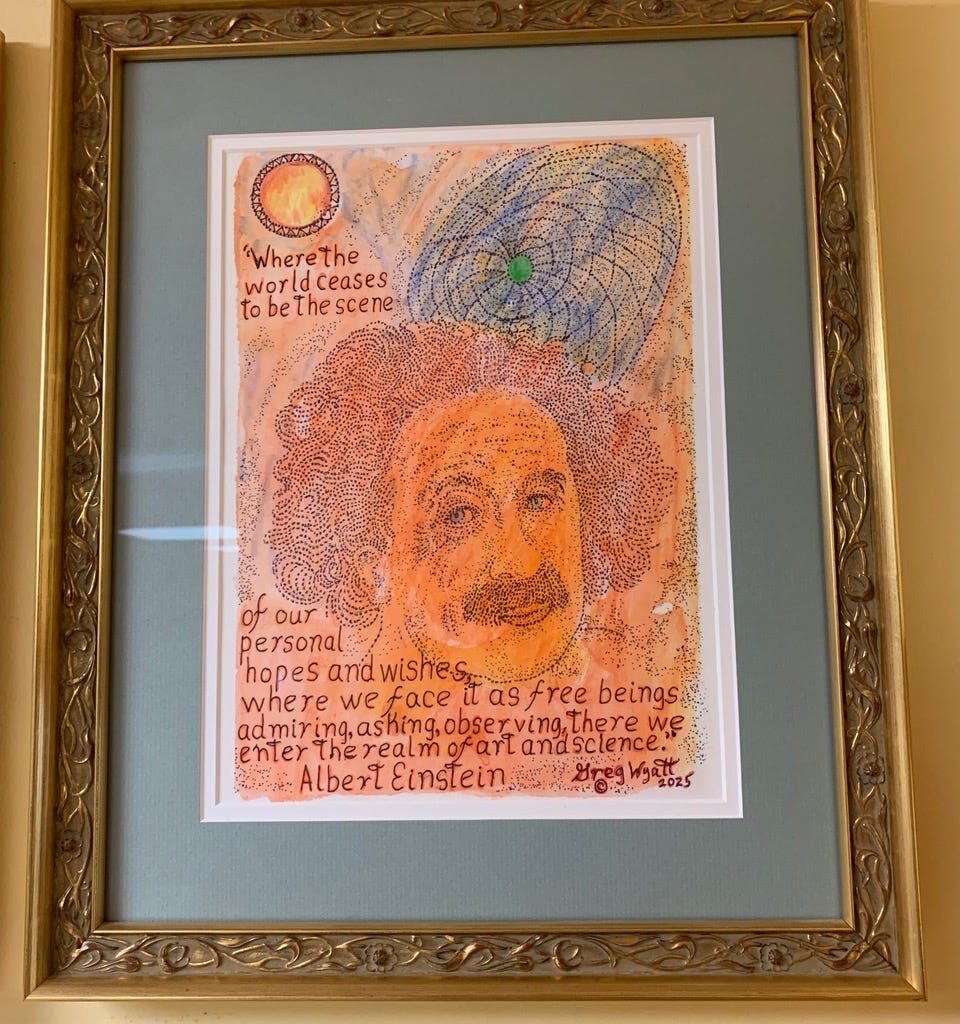 "Where the
world ceases
to be the scene
of our
personal
hopes and wishes,
where we face it as free beings
admiring, asking, observing, there we
enter the realm of art and science."
Albert Einstein
Greg Wyatt
© 2025